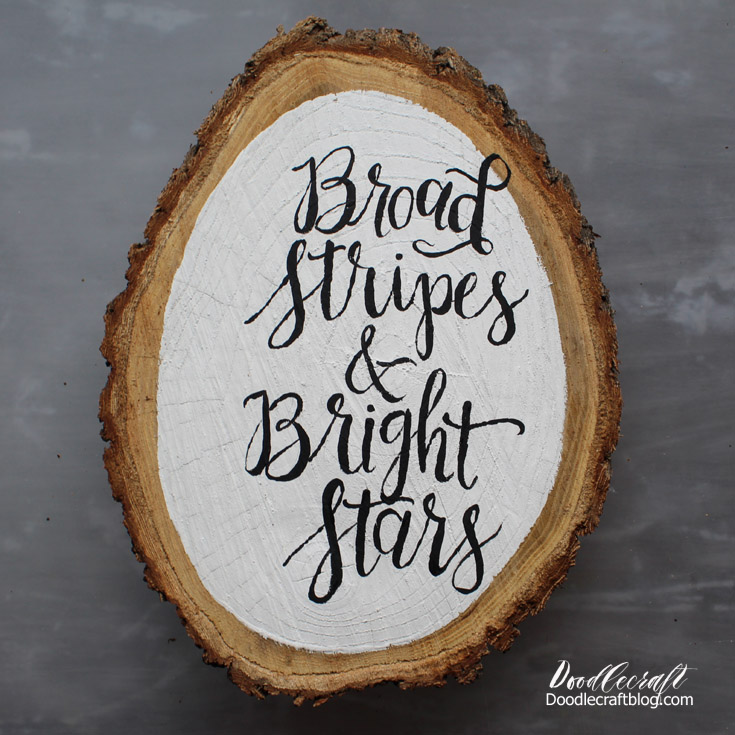 Broad
Stripes
&
Bright
Stars
Doodlecraft
Doodlecraftblog.com